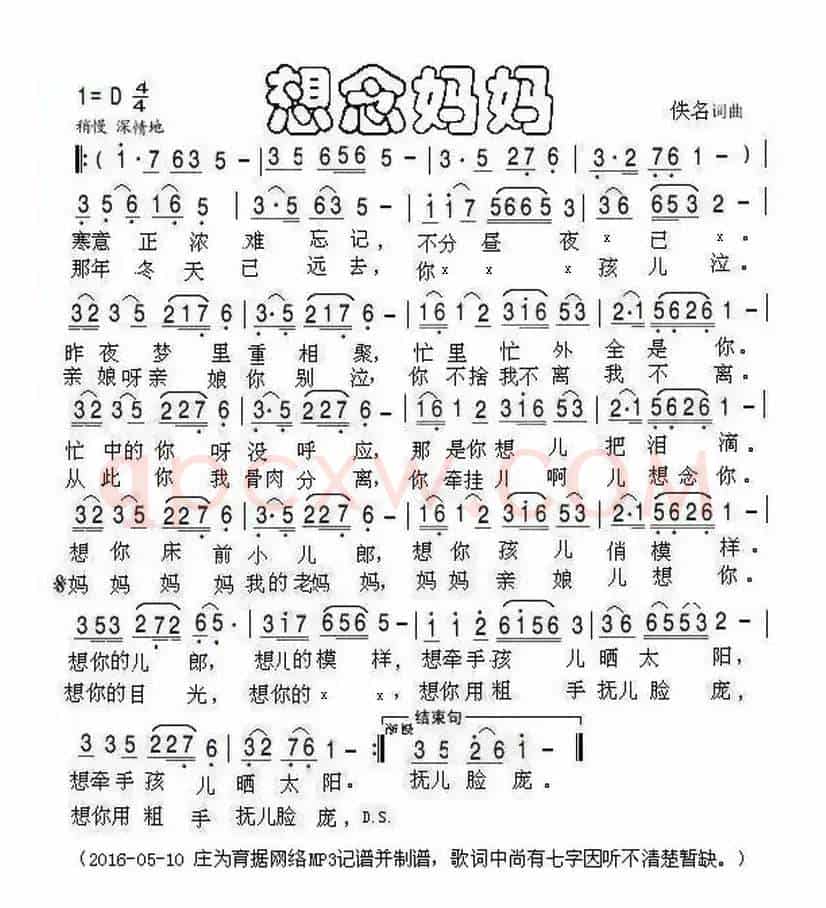 想念妈妈
1=D 4/4
稍慢 深情地
佚名词曲
(i·7 63 5 - | 35 656 5 - | 3·5 27 6 | 3·2 76 1 - ) |
3 56 16 5 | 3·5 63 5 - | i i7 5665 3 | 36 653 2 - |
寒意正浓难忘记，不分昼夜×已×。
那年冬天已远去，你××孩儿泣。
32 35 217 6 | 3·5 217 6 - | 16 12 3i6 53 | 2·1 5626 1 - |
昨夜梦里重相聚，忙里忙外全是你。
亲娘呀亲娘你别泣，你不捨我不离我不离。
32 35 227 6 | 3·5 227 6 - | 16 1 2 3i6 53 | 2·1 5626 1 - |
忙中的你呀没呼应，那是你想儿把泪滴。
从此你我骨肉分离，你牵挂儿啊儿想念你。
qpcxw.com
32 35 227 6 | 3·5 227 6 - | 16 1 2 3i6 53 | 2·1 5626 1 - |
想你床前小儿郎，想你孩儿俏模样。
妈妈妈妈我的老妈妈，妈妈亲娘儿想你。
353 272 65· | 3i7 656 5 - | i i2 6i56 3 | 36 6553 2 - |
想你的儿郎，想儿的模样，想牵手孩儿晒太阳，
想你的目光，想你的××，想你用粗手抚儿脸庞，
结束句
渐慢
3 35 227 6 | 32 76 1 - :| 35 26 i - |
想牵手孩儿晒太阳。抚儿脸庞。
想你用粗手抚儿脸庞，D.S.
（2016-05-10 庄为育据网络MP3记谱并制谱，歌词中尚有七字因听不清楚暂缺。）